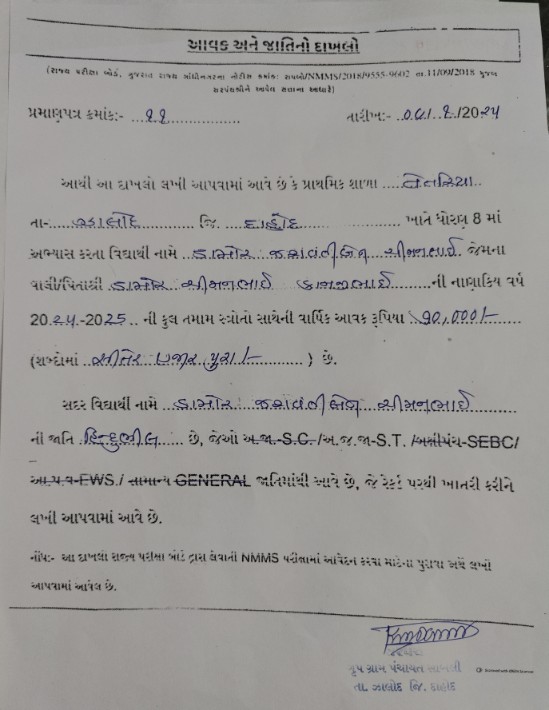 આવક અને જાતિનો દાખલો
(રાજ્ય પરીક્ષા બોર્ડ, ગુજરાત રાજ્ય ગાંધીનગરના નોટીસ ક્રમાંક: રાપબો/NMMS/2018/9555-9602 તા.11/09/2018 મુજબ
સરપંચશ્રીને આવેલ સત્તાના આધારે)
પ્રમાણપત્ર ક્રમાંક:- ૧૧ તારીખ:- ૦૫/ ૧/2024
આથી આ દાખલો લખી આપવામાં આવે છે કે પ્રાથમિક શાળા
તા- ઝાલોદ જિ. દાહોદ ખાતે ધોરણ 8 માં
અભ્યાસ કરતા વિદ્યાર્થી નામે ડામોર જશવંતીબેન ચીમનભાઈ જેમના
વાલી/પિતાશ્રી ડામોર ચીમનભાઈ કાનજીભાઈ ની નાણાકિય વર્ષ
2024-2025 ની કુલ તમામ સ્ત્રોતો સાથેની વાર્ષિક આવક રૂપિયા ૭૦,૦૦૦/-
(શબ્દોમાં સીતેર હજાર પુરા/- ) છે.
સદર વિદ્યાર્થી નામે ડામોર જશવંતીબેન ચીમનભાઈ
ની જાતિ હિન્દુભીલ છે, જેઓ અ.જા.-S.C./અ.જ.જા-S.T. /બક્ષીપંચ-SEBC/
આ.પ.વ-EWS./ સામાન્ય GENERAL જાતિમાંથી આવે છે, જે રેકર્ડ પરથી ખાતરી કરીને
લખી આપવામાં આવે છે.
નોંધ:- આ દાખલો રાજ્ય પરીક્ષા બોર્ડ દ્વારા લેવાતી NMMS પરીક્ષામાં આવેદન કરવા માટેના પુરાવા અર્થે લખી
આપવામાં આવેલ છે.
ગ્રુપ ગ્રામ પંચાયત
તા. ઝાલોદ જિ. દાહોદ